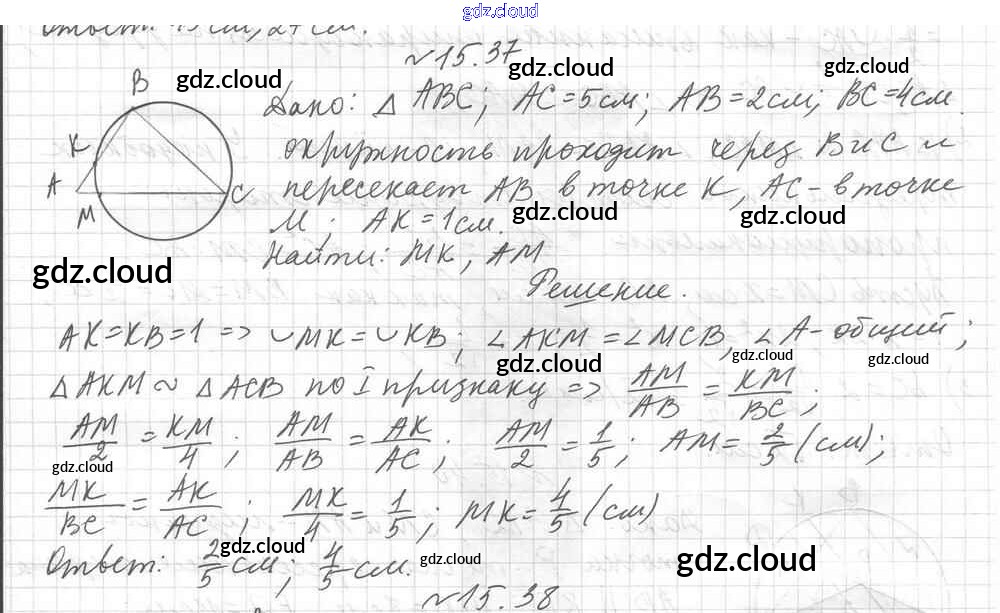 gdz.cloud
Ответ: см, 27 см.
№15.37
B
K
A
M
C
gdz.cloud
gdz.cloud
gdz.cloud
Дано: △ ABC; AC=5см; AB=2см; BC=4см.
окружность проходит через B и C и
пересекает AB в точке K, AC - в точке
M; AK=1см.
gdz.cloud
gdz.cloud
Найти: MK, AM
gdz.cloud
Решение.
AK=KB=1 => ∪MK=∪KB; ∠AKM=∠MCB, ∠A-общий;
gdz.cloud
gdz.cloud
gdz.cloud
△AKM ~ △ACB по I признаку => AM/AB = KM/BC;
AM/2 = KM/4; AM/AB = AK/AC; AM/2 = 1/5; AM= 2/5 (см);
gdz.cloud
MK/BC = AK/AC; MK/4 = 1/5; MK= 4/5 (см)
Ответ: 2/5 см, 4/5 см.
gdz.cloud
gdz.cloud
gdz.cloud
№15.38